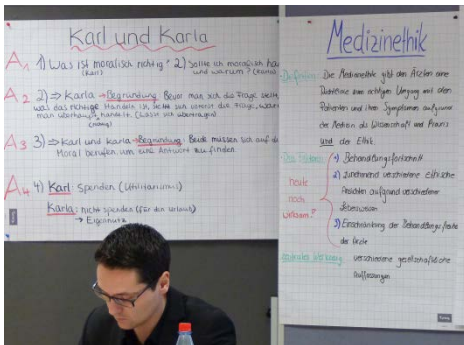 Karl und Karla
A1 1) Was ist moralisch richtig? 2) Sollte ich moralisch
(Karl) und warum? (Karla)
A2 2) ⇒ Karla → Begründung: Bevor man sich die Frage stellt,
was das richtige Handeln ist, sich die Frage,
man überhaupt handelt. (Lässt sich übertragen)
A3 3) ⇒ Karl und Karla → Begründung: Beide müssen sich auf die
Moral berufen um eine Antwort zu finden.
A4 4) Karl: Spenden (Utilitarismus)
Karla: nicht spenden (für den Urlaub)
→ Eigennutz
Medizinethik
Definition: Die Medizinethik gibt den Ärzten eine
zum richtigen Umgang mit den
Patienten und ihrer Symptomen aufgrund
der Medizin als Wissenschaft und Praxis
und der Ethik.
1) Behandlungsfortschritt
2) zunehmend verschiedene Ethische
Ansichten aufgrund verschiedener
Lebensweisen
3) Einschränkung der
der Ärzte
heute
noch
wirksam?
verschiedene gesellschaftliche
Auffassungen